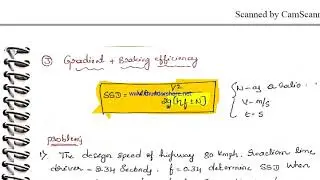 Scanned by CamScann
③ Gradient + Braking efficiency
SSD = V²
2g[ηf ± N]
N - as a ratio
V - m/s
t = s
problem:
1) The design speed of highway 80 kmph. Reaction time
driver = 2.34 Seconds, f = 0.34 determine SSD when